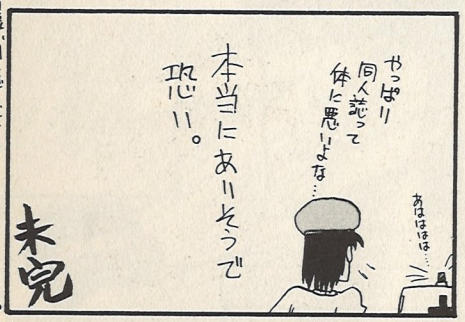 あはははは…
やっぱり
同人誌って
体に悪いよな…
本当にありそうで
恐い。
未完